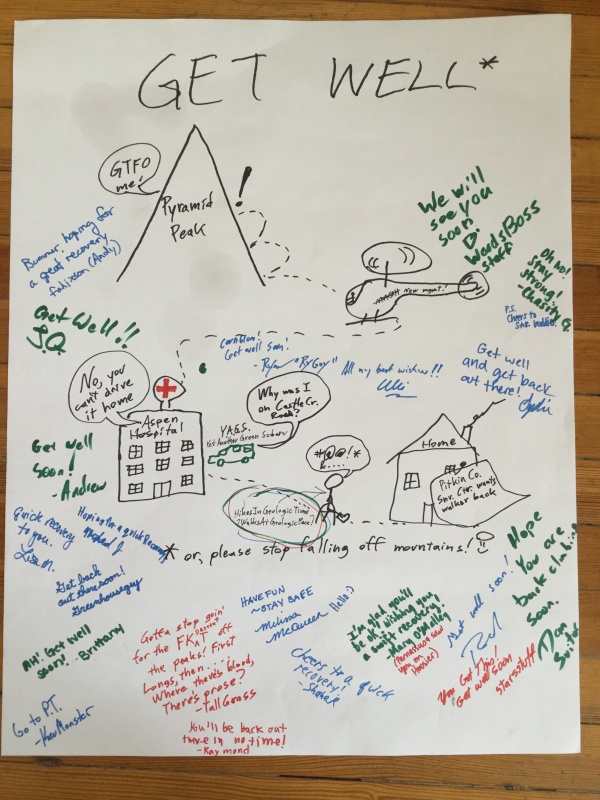 GET WELL*
GTFO
me!
Pyramid
Peak
!
Bummer, hoping for
a great recovery
(Andy)
We will
see you
soon
D.
Woods/Boss
staff
Oh no!
Stay
strong!
-Chasity G.
P.S.
Cheers to
SAR buddies!
New mgmt.!
Get Well!!
J.Q.
Get well soon!
- Ryan "RyGuy"
All my best wishes!!
Get well
and get back
out there!
No, you
can't drive
it home
Aspen
Hospital
Y.A.G.S.
Yet Another Green Subaru
Why was I
on Castle Cr.
Road?
#@@!*
&....
Home
Pitkin Co.
Snr. Ctr. wants
walker back
Get well
soon!
-Andrew
HikesInGeologicTime
(WalksAtGeologicPace)
Quick recovery
to you.
Lisa M.
Hoping for a quick Recovery
* or, please stop falling off mountains!
Get back
out there soon!
Greenhouseguy
Ah! Get well
soon! -Brittany
Go to P.T.
-KeyMonster
Gotta stop goin'
for the FKDescent off
the peaks! First
Longs, then....
Where there's blood,
There's prose?
-TallGrass
You'll be back out
there in no time!
-Raymond
HAVE FUN
~STAY SAFE
Melissa
McQueen
Hello :)
Cheers to a quick
recovery!
I'm glad you'll
be ok! wishing you
a swift recovery,
Get well soon!
You Got This!
Get well soon
Starsstuff
Hope
you are
back climbing
soon.